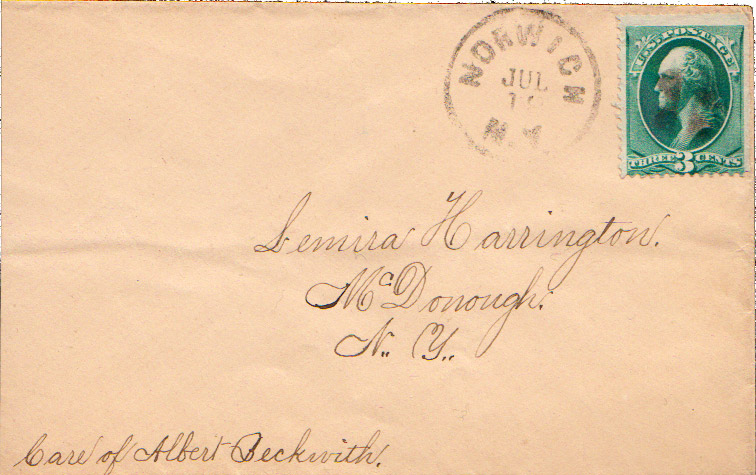 NORWICH
JUL
N.Y.
U.S. POSTAGE
THREE 3 CENTS
Lemira Harrington.
McDonough.
N. Y.
Care of Albert Beckwith.